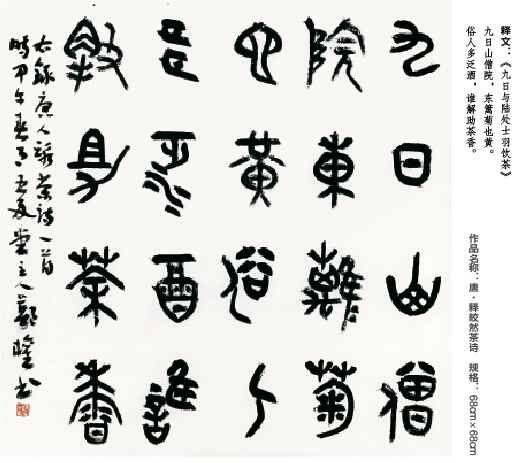 释文：《九日与陆处士羽饮茶》
九日山僧院，东篱菊也黄。
俗人多泛酒，谁解助茶香。
作品名称：唐·释皎然茶诗　规格：68cm×68cm
九日山僧
院東籬菊
也黃俗人
多泛酒誰
解助茶香
右錄唐人釋茶詩一首
時甲午春月堂主人書